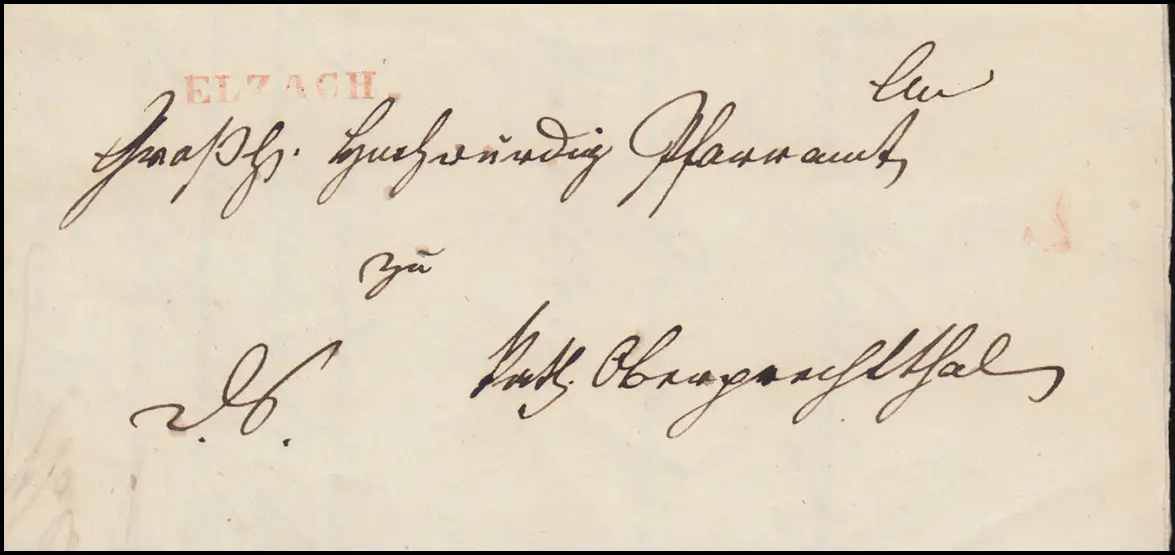 ELZACH.
An
Großh. Hochwürdig Pfarramt
zu
Kath. Oberprechtthal
D.S.